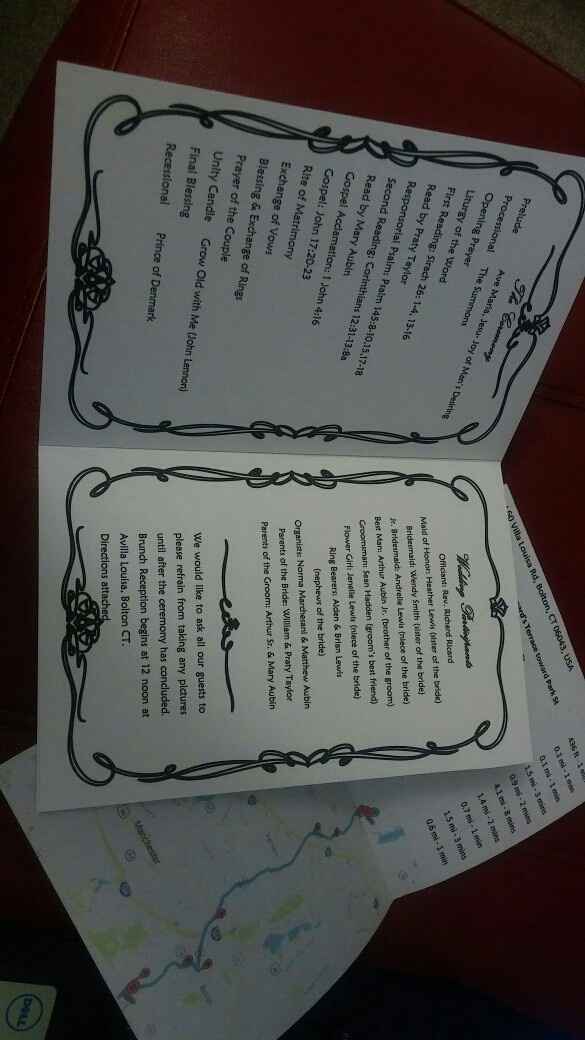 The Ceremony
Prelude Ave Maria, Jesu- Joy of Man's Desiring
Processional The Summons
Opening Prayer
Liturgy of the Word
First Reading: Sirach 26: 1-4, 13-16
Read by Praty Taylor
Responsorial Psalm: Psalm 145:8-10,15,17-18
Second Reading: Corinthians 12:31-13:8a
Read by Mary Aubin
Gospel Acclamation: 1 John 4:16
Gospel: John 17:20-23
Rite of Matrimony
Exchange of Vows
Blessing & Exchange of Rings
Prayer of the Couple
Unity Candle Grow Old with Me (John Lennon)
Final Blessing
Recessional Prince of Denmark
Wedding Participants
Officiant: Rev. Richard Ricard
Maid of Honor: Heather Lewis (sister of the bride)
Bridesmaid: Wendy Smith (sister of the bride)
Jr. Bridesmaid: Andrelle Lewis (niece of the bride)
Best Man: Arthur Aubin Jr. (brother of the groom)
Groomsman: Sean Hadden (groom's best friend)
Flower Girl: Jenelle Lewis (niece of the bride)
Ring Bearers: Aiden & Brian Lewis
(nephews of the bride)
Organists: Norma Marchesani & Matthew Aubin
Parents of the Bride: William & Praty Taylor
Parents of the Groom: Arthur Sr. & Mary Aubin
We would like to ask all our guests to
please refrain from taking any pictures
until after the ceremony has concluded.
Brunch Reception begins at 12 noon at
Avilla Louisa, Bolton CT.
Directions attached.
60 Villa Louisa Rd, Bolton, CT 06043, USA
Terrace toward Park St
436 ft - 1 min
0.1 mi - 1 min
0.1 mi - 1 min
1.5 mi - 3 mins
0.9 mi - 2 mins
4.1 mi - 8 mins
1.4 mi - 2 mins
0.7 mi - 1 min
1.5 mi - 3 mins
0.6 mi - 1 min
Manchester
DELL